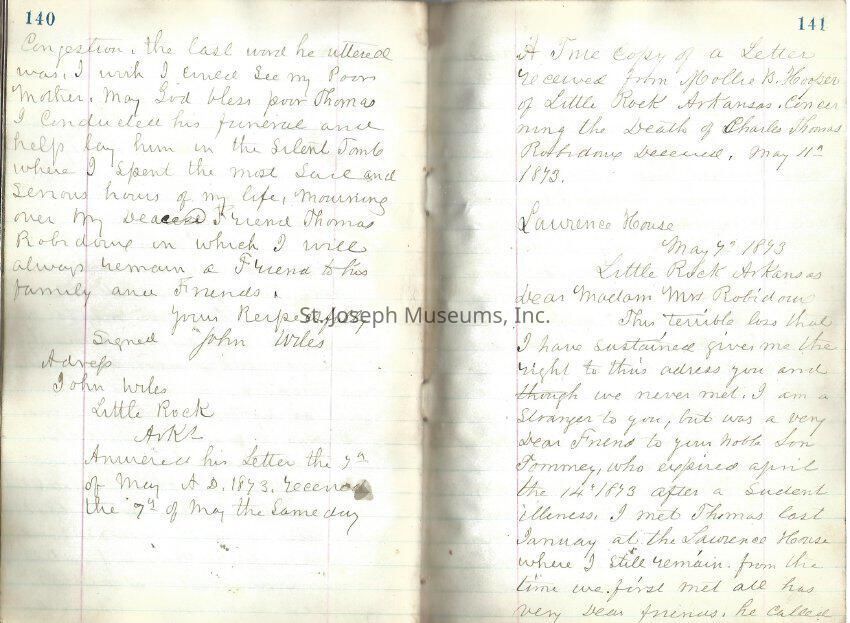 140
Congestion. the last word he uttered
was, I wish I could See my Poor
Mother. May God bless poor Thomas
I Conducted his funeral and
help lay him in the Silent Tomb
where I spent the most Sad and
Serious hours of my life, Mourning
over my Deaceed Friend Thomas
Robidoux in which I will
always remain a Friend to his
family and Friends.
Yours Respectfully
Signed John Wiles
Adress
John Wiles
Little Rock
Arks
Answered his Letter the 7th
of May A.D. 1873. received
the 7th of May the Same day
St. Joseph Museums, Inc.
141
A True Copy of a Letter
received from Mollie B. Hooper
of Little Rock Arkansas. Concer
ning the Death of Charles Thomas
Robidoux Deceased. May 11th
1873.
Lawrence House
May 7th 1873
Little Rock Arkansas
Dear Madam Mrs Robidoux
This terrible loss that
I have sustained gives me the
right to this adress you and
though we never met. I am a
Stranger to you, but was a very
Dear Friend to your noble Son
Tommey, who expired april
the 14th 1873 after a Sudent
illness. I met Thomas last
January at the Lawrence House
where I still remain. from the
time we first met all has
very Dear friends. he Called